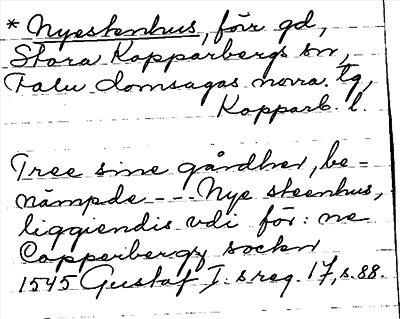 * Nyestenhus, förr gd,
Stora Kopparbergs sn,
Falu domsagas norra tg,
Kopparb. l.
Tree sine gårdher, be=
nämpde --- Nye steenhus,
liggiendis vdi för: ne
Copperbergz sockn
1545 Gustaf I:s reg. 17, s. 88.